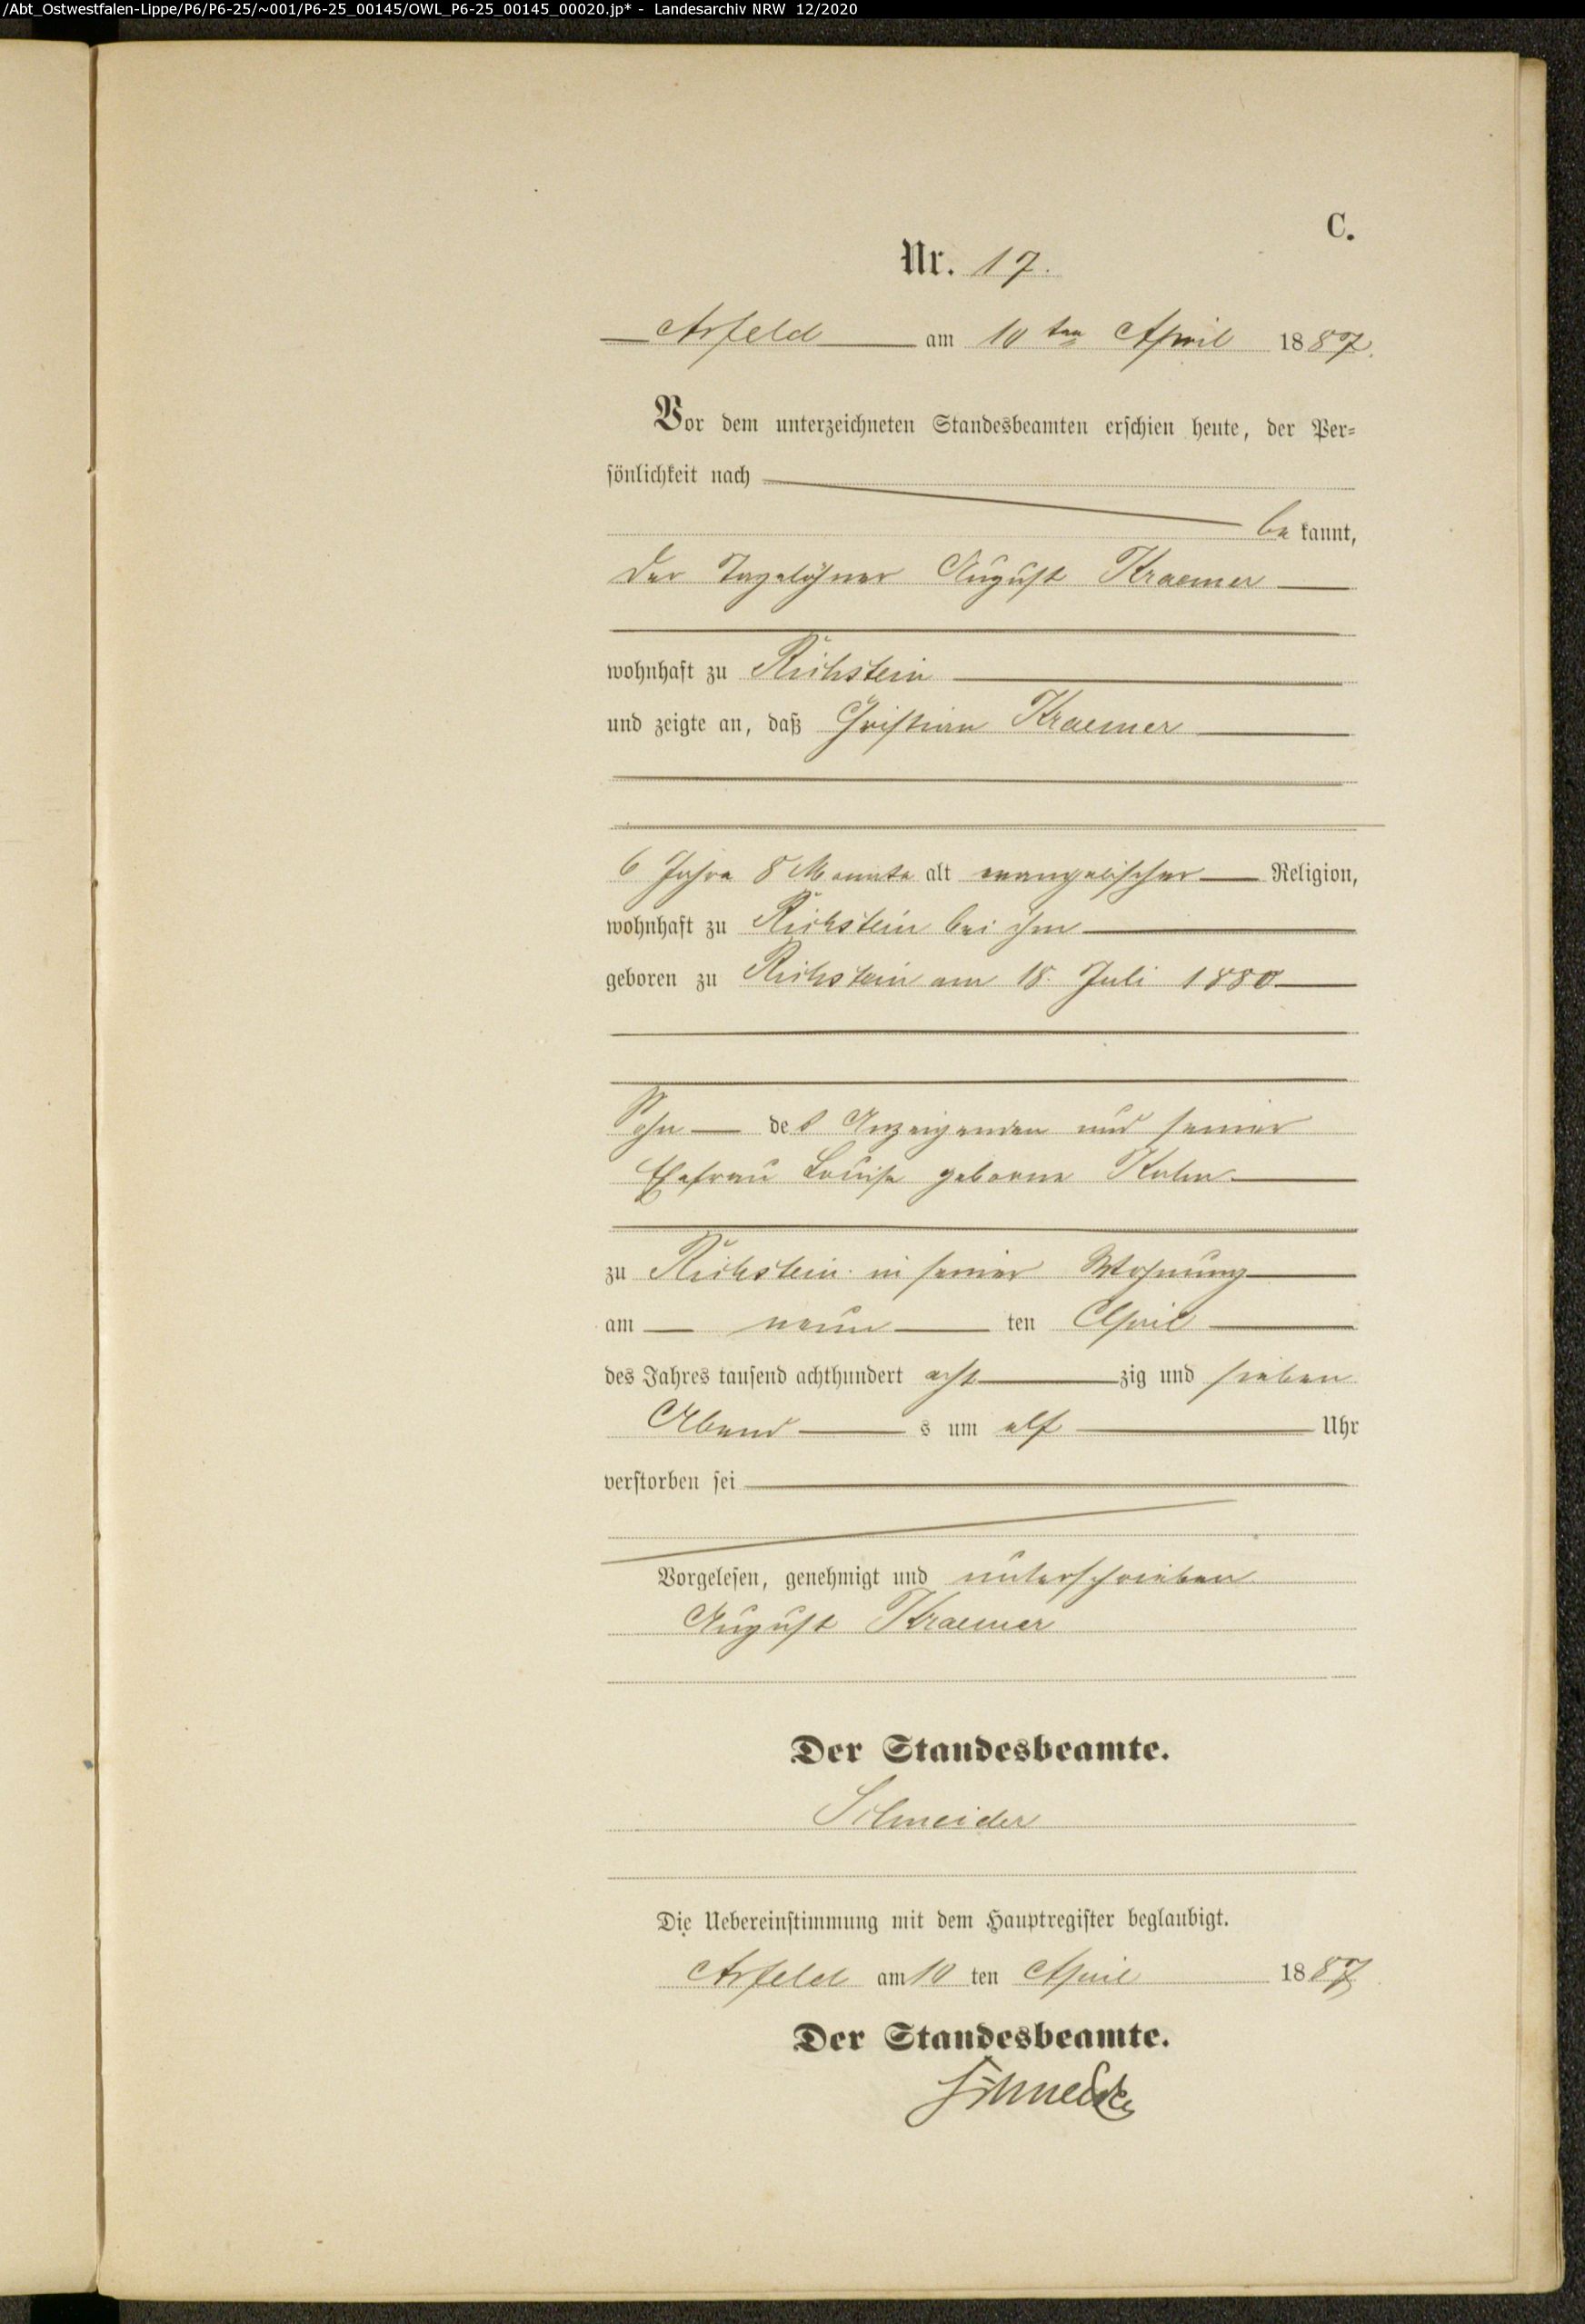 /Abt_Ostwestfalen-Lippe/P6/P6-25/~001/P6-25_00145/OWL_P6-25_00145_00020.jp* - Landesarchiv NRW 12/2020
C.
Nr. 17.
Arfeld am 10 ten April 1887.
Vor dem unterzeichneten Standesbeamten erschien heute, der Per-
sönlichkeit nach
be kannt,
der Tagelöhner August Kraemer
wohnhaft zu Richstein
und zeigte an, daß Christian Kraemer
6 Jahre 8 Monate alt evangelischer Religion,
wohnhaft zu Richstein bei ihm
geboren zu Richstein am 18. Juli 1880
Sohn des Anzeigenden und seiner
Ehefrau Louise geborne
zu Richstein in seiner Wohnung
am neun ten April
des Jahres tausend achthundert acht zig und sieben
Abend s um elf Uhr
verstorben sei
Vorgelesen, genehmigt und unterschrieben
August Kraemer
Der Standesbeamte.
Schneider
Die Uebereinstimmung mit dem Hauptregister beglaubigt.
Arfeld am 10 ten April 1887
Der Standesbeamte.
Schneider